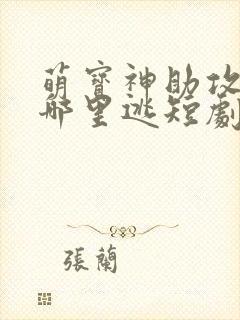 萌寶神助攻
哪里逃短劇
張蘭